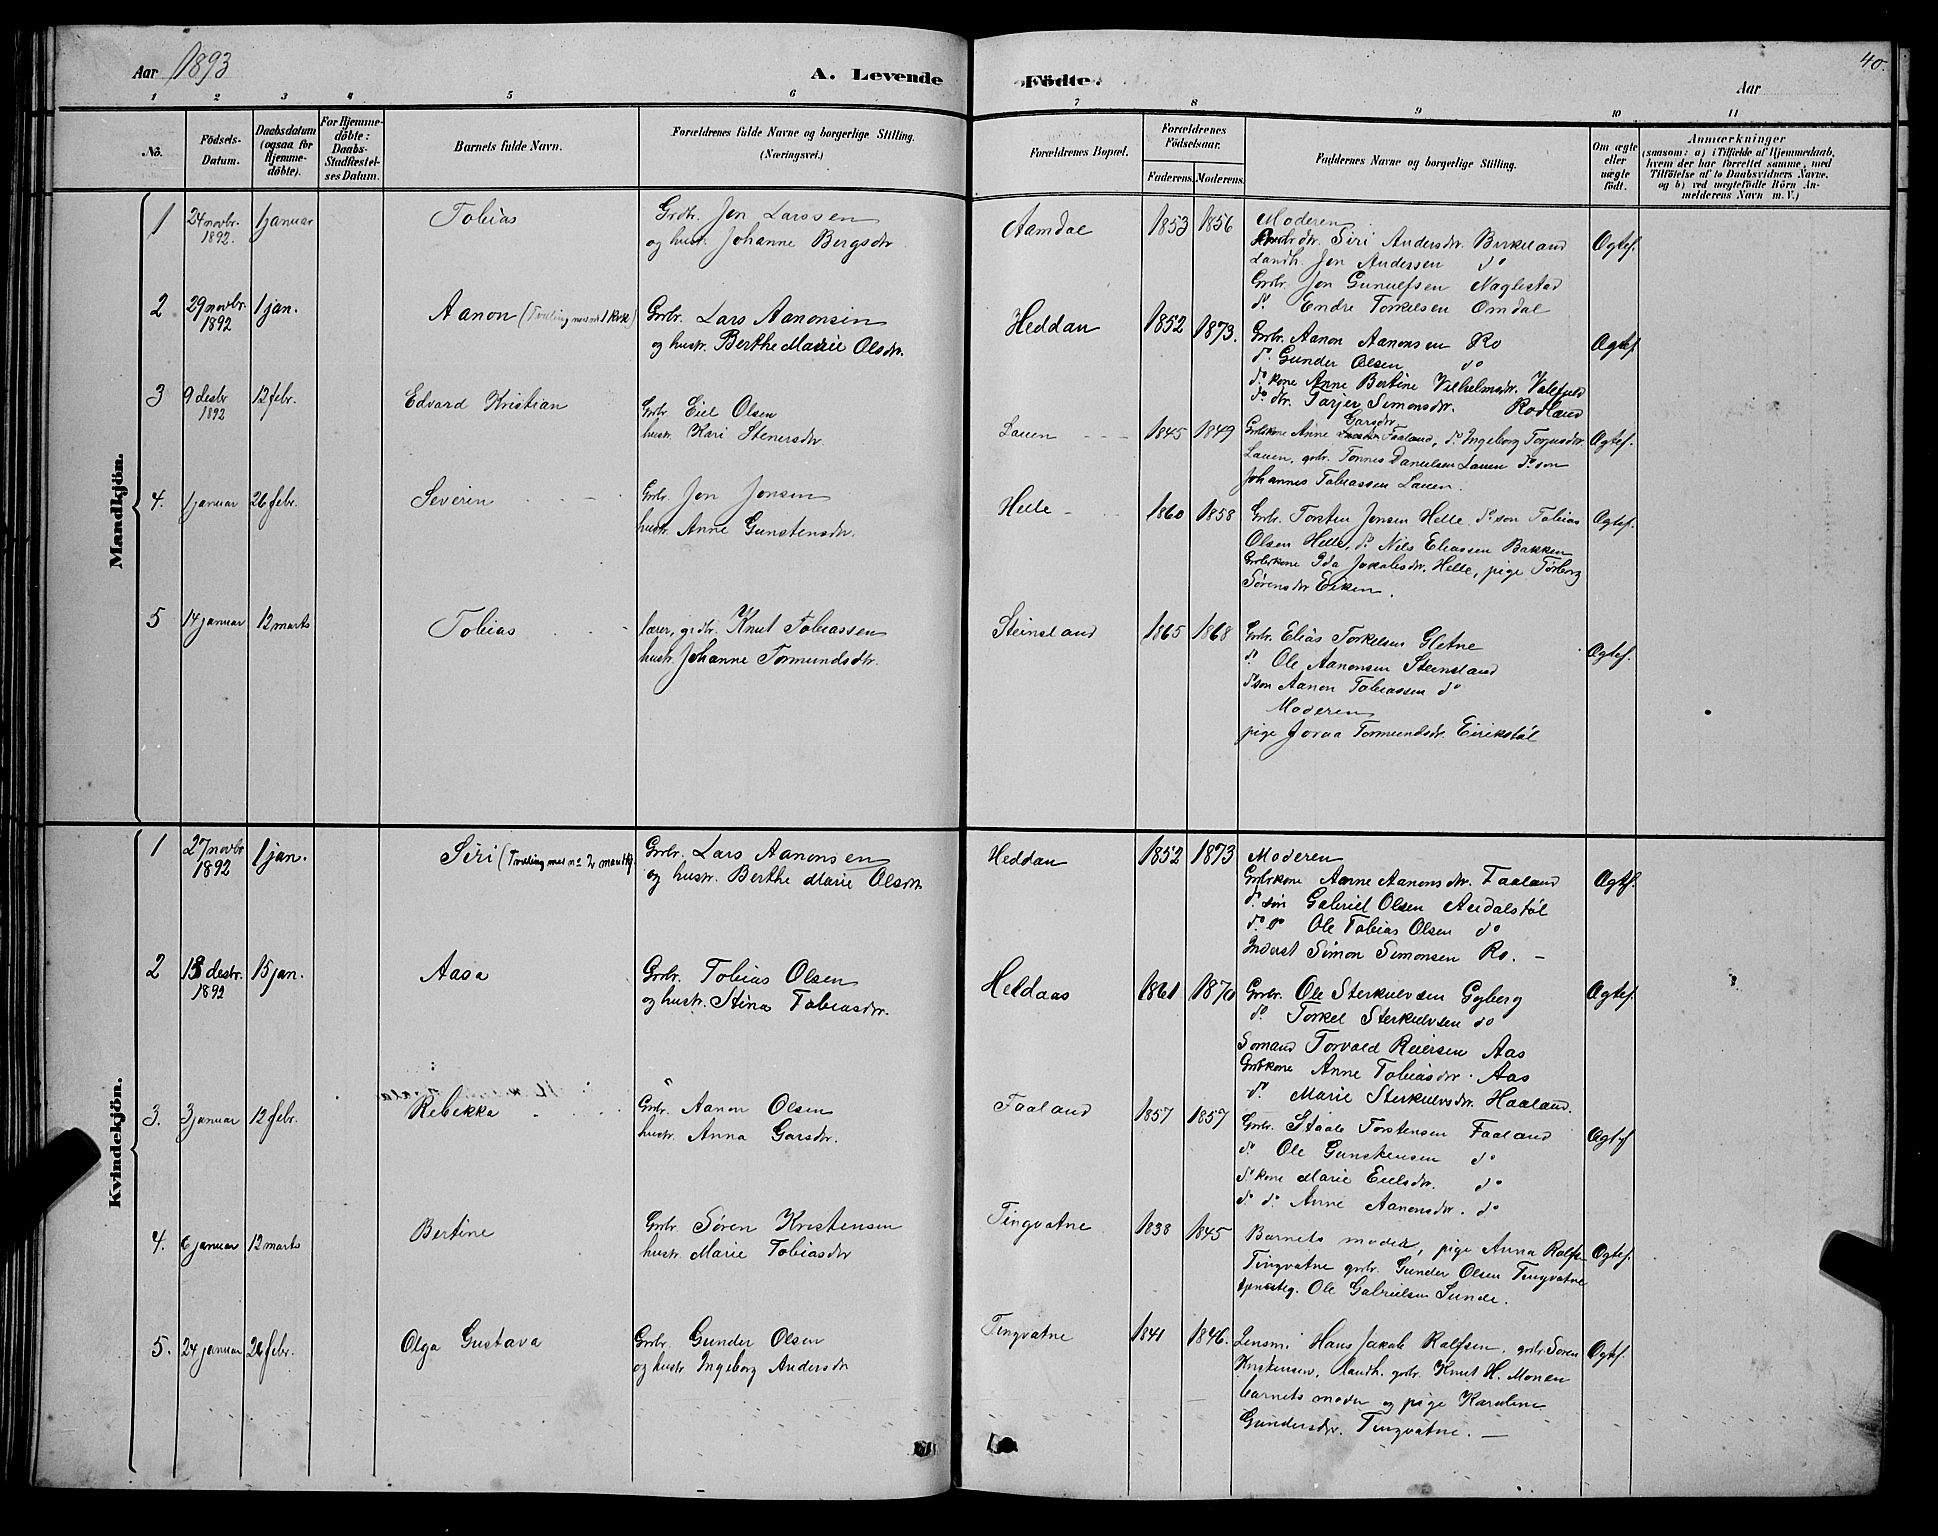 Aar 1893
A. Levende Födte.
Aar
40.
1 2 3 4 5 6 7 8 9 10 11
No.
Födsels-Datum.
Daabsdatum (ogsaa for Hjemme-döbte).
For Hjemme-döbte: Daabs-Stadfæstel-ses Datum.
Barnets fulde Navn.
Forældrenes fulde Navne og borgerlige Stilling. (Næringsvei.)
Forældrenes Bopæl.
Forældrenes Födselsaar.
Faderens. Moderens.
Faddernes Navne og borgerlige Stilling.
Om ægte eller uægte født.
Anmærkninger
(saasom: a) i Tilfælde af Hjemmedaab, hvem der har forrettet samme, med Tilföielse af to Daabsvidners Navne. og b) ved uægtefödte Börn An-melderens Navn m. V.)
Mandkjön.
1 24 novbr. 1892. 1 januar Tobias Grdbr. Jon Larssen
og hustr. Johanne Bergsdtr. Aamdal 1853 1856 Moderen
Siri Andersdtr. Birkeland
Landh. Jon Andersen do
Grbr. Jon Gunulfsen Naglestad
do Endre Torkelsen Omdal
Ægtef.
2 29 novbr. 1892 1 jan. Aanon (Tvilling med no 1 kvk) Grbr. Lars Aanonsen
og hustr. Berthe Marie Olsdtr. Heddan 1852 1873. Grbr. Aanon Aanonsen Ro
do Gunder Olsen do
do kone Anne Bertine Vilhelmsdtr.
do dtr. Tarjer Simonsdtr. Rodland
Ægtef.
3 9 desbr 1892 12 febr. Edvard Kristian Grbr. Eiel Olsen
hustr. Kari Stenersdtr. Lauen 1845 1849 Grbrkone Anne Garsdtr Faaland, do Ingeborg Torjusdtr.
Lauen, grbr. Tønnes Danielsen Lauen do søn
Johannes Tobiassen Lauen.
Ægtef.
4. 1 januar 26 febr. Severin Grbr. Jon Jonsen
hustr. Anne Gunstensdtr. Helle 1860 1858 Grbr. Torsten Jensen Helle do søn Tobias
Olsen Helle, do Nils Eliassen Bakken
Grbrkone Ida Jakobsdtr. Helle, pige Torborg
Sørensdtr Eiken.
Ægtef.
5 14 januar 12 marts Tobias lærer, grdbr. Knut Tobiassen
hustr. Johanne Tormundsdtr. Steinsland 1865 1868 Grbr. Elias Torkelsen Gletne
do Ole Aanonsen Steinsland
do søn Aanon Tobiassen do
Moderen
pige Joraa Tormundsdtr. Eirikstøl
Ægtef.
Kvindekjön.
1 27 novbr 1892 1 jan. Siri (Tvilling med no 2 mandkj) Grbr. Lars Aanonsen
og hustr. Berthe Marie Olsdtr. Heddan 1852 1873 Moderen
Grbrkone Anne Aanonsdtr. Faaland
do søn Gabriel Olsen Audalstøl
do do Ole Tobias Olsen do
Inderst Simon Simonsen Ro. —
Ægtef.
2 13 desbr. 1892 15 jan. Aasa Grbr. Tobias Olsen
og hustr. Stina Tobiasdtr. Heldaas 1861 1870 Grbr. Ole Sterkulvsen Gyberg
do Torkel Sterkulvsen do
Sømand Torvald Reiersen Aas
Grbrkone Anne Tobiasdtr. Aas
do Marie Sterkulvsdtr. Haaland.
Ægtef.
3. 3 januar 12 febr. Rebekka Grbr. Aanon Olsen
hustr. Anna Garsdtr. Faaland 1857 1857 Grbr. Staale Torstensen Faaland
do Ole Gunstensen do
do kone Marie Eielsdtr. do
do do Anne Aanonsdtr. do
Ægtef
4. 6 januar 12 marts Bertine Grbr Søren Kristensen
hustr. Marie Tobiasdtr Tingvatne 1838 1845 Barnets moder, pige Anna Ralfs.
Tingvatne grbr. Gunder Olsen Tingvatne
tjenesteg. Ole Gabrielsen Sunde.
Ægtef.
5. 24 januar 26 febr. Olga Gustava Grbr. Gunder Olsen
og hustr Ingeborg Andersdtr Tingvatne 1841 1846. Lensm. Hans Jakob Ralfsen, grbr. Søren
Kristensen, landh. grbr. Knut H. Monen
barnets moder og pige Karoline
Gundersdtr. Tingvatne. —
Ægtef.